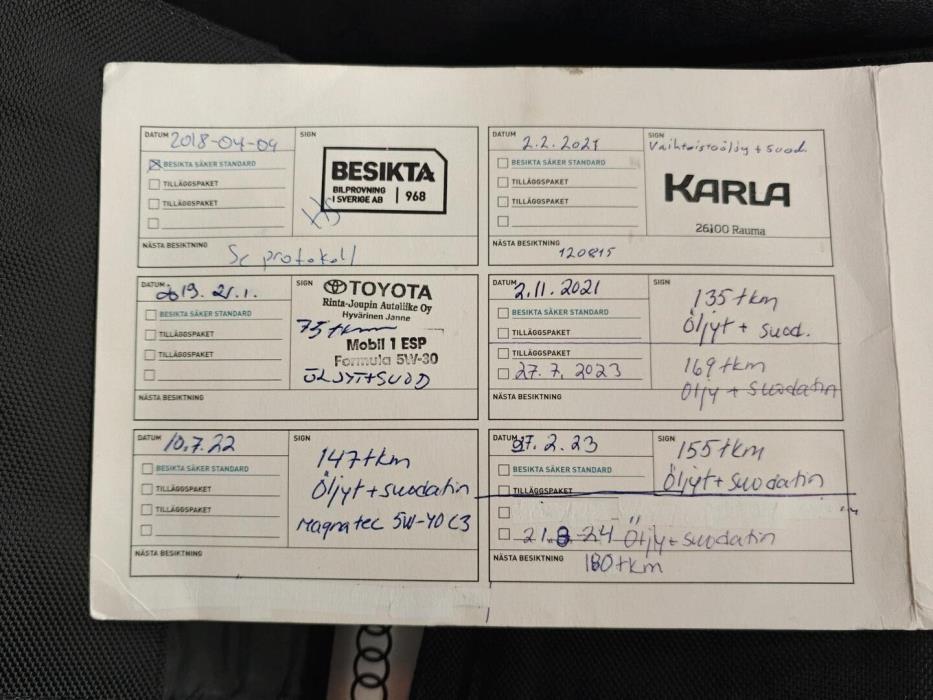 DATUM 2018-04-09
SIGN
BESIKTA SÄKER STANDARD
TILLÄGGSPAKET
TILLÄGGSPAKET
BESIKTA
BILPROVNING
I SVERIGE AB | 968
NÄSTA BESIKTNING
Se protokoll
DATUM 2.2.2021
SIGN
Vaihteistoöljy + suod.
BESIKTA SÄKER STANDARD
TILLÄGGSPAKET
TILLÄGGSPAKET
KARLA
26100 Rauma
NÄSTA BESIKTNING
120815
DATUM 19. 21.1.
SIGN
BESIKTA SÄKER STANDARD
TILLÄGGSPAKET
TILLÄGGSPAKET
TOYOTA
Rinta-Joupin Autoliike Oy
Hyvärinen Janne
75tkm
Mobil 1 ESP
Formula 5W-30
ÖLJYT+SUOD
NÄSTA BESIKTNING
DATUM 2.11.2021
SIGN
135tkm
Öljyt + suod.
BESIKTA SÄKER STANDARD
TILLÄGGSPAKET
TILLÄGGSPAKET
27.7.2023
169tkm
Öljy + Suodatin
NÄSTA BESIKTNING
DATUM 10.7.22
SIGN
147tkm
Öljyt + suodatin
Magnatec 5W-40 C3
BESIKTA SÄKER STANDARD
TILLÄGGSPAKET
TILLÄGGSPAKET
NÄSTA BESIKTNING
DATUM 27.2.23
SIGN
155tkm
Öljyt + suodatin
BESIKTA SÄKER STANDARD
TILLÄGGSPAKET
21.8-24 Öljy + suodatin
NÄSTA BESIKTNING
180tkm